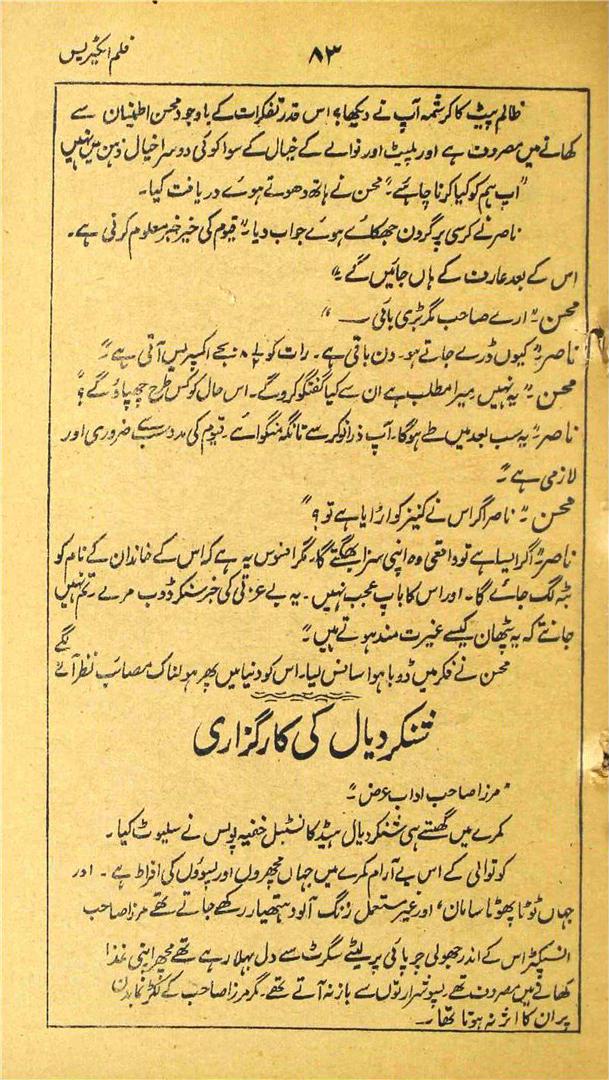 فلم ایکٹریس
۸۳
ظالم پیٹ کا کرشمہ آپ نے دیکھا؟ اس قدر تفکرات کے باوجود محسن اطمینان سے
کھانے میں مصروف ہے اور پلیٹ اور نوالے کے خیال کے سوا کوئی دوسرا خیال ذہن میں نہیں
"اب ہم کو کیا کرنا چاہئے۔" محسن نے ہاتھ دھوتے ہوئے دریافت کیا۔
ناصر نے کرسی پر گردن جھکائے ہوئے جواب دیا۔ "قیوم کی خیر خبر معلوم کرنی ہے۔
اس کے بعد عارف کے ہاں جائیں گے۔"
محسن۔ "ارے صاحب مگر بڑی بائی ــــ"
ناصر۔ "کیوں ڈرے جاتے ہو۔ دن باقی ہے۔ رات کو ۸ بجے اکسپریس آتی ہے۔"
محسن۔ "یہ نہیں میرا مطلب ہے ان سے کیا گفتگو کروگے۔ اس حال کو کس طرح چھپاؤ گے؟"
ناصر۔ "یہ سب بعد میں طے ہوگا۔ آپ ذرا نوکر سے تانگہ منگوائے۔ قیوم کی مدد سب سے ضروری اور
لازمی ہے۔"
محسن۔ "ناصر اگر اس نے کنیز کو اڑایا ہے تو؟"
ناصر۔ "اگر ایسا ہے تو واقعی وہ اپنی سزا بھگتے گا۔ مگر افسوس یہ ہے کہ اس کے خاندان کے نام کو
بٹہ لگ جائے گا۔ اور اس کا باپ عجب نہیں۔ یہ بے عزتی کی خبر سنکر ڈوب مرے۔ تم نہیں
جانتے کہ یہ پٹھان کیسے غیرت مند ہوتے ہیں۔"
محسن نے فکر میں ڈوبا ہوا سانس لیا۔ اس کو دنیا میں پھر ہولناک مصائب نظر آنے لگے
شنکر دیال کی کارگزاری
"مرزا صاحب اداب عرض۔"
کمرے میں گھستے ہی شنکر دیال ہیڈ کانسٹبل خفیہ پولس نے سلیوٹ کیا۔
کوتوالی کے اس بے آرام کمرے میں جہاں مچھروں اور پسوؤں کی افراط ہے۔ اور
جہاں ٹوٹا پھوٹا سامان، اور غیر مستعمل زنگ آلود ہتھیار رکھے جاتے تھے مرزا صاحب
انسپکٹر اس کے اندر جھولی چرپائی پر لیٹے سگرٹ سے دل بہلا رہے تھے مچھر اپنی غذا
کھانے میں مصروف تھے۔ پسو شرارتوں سے باز نہ آتے تھے۔ مگر مرزا صاحب کے بدن
پر ان کا اثر نہ ہوتا تھا۔